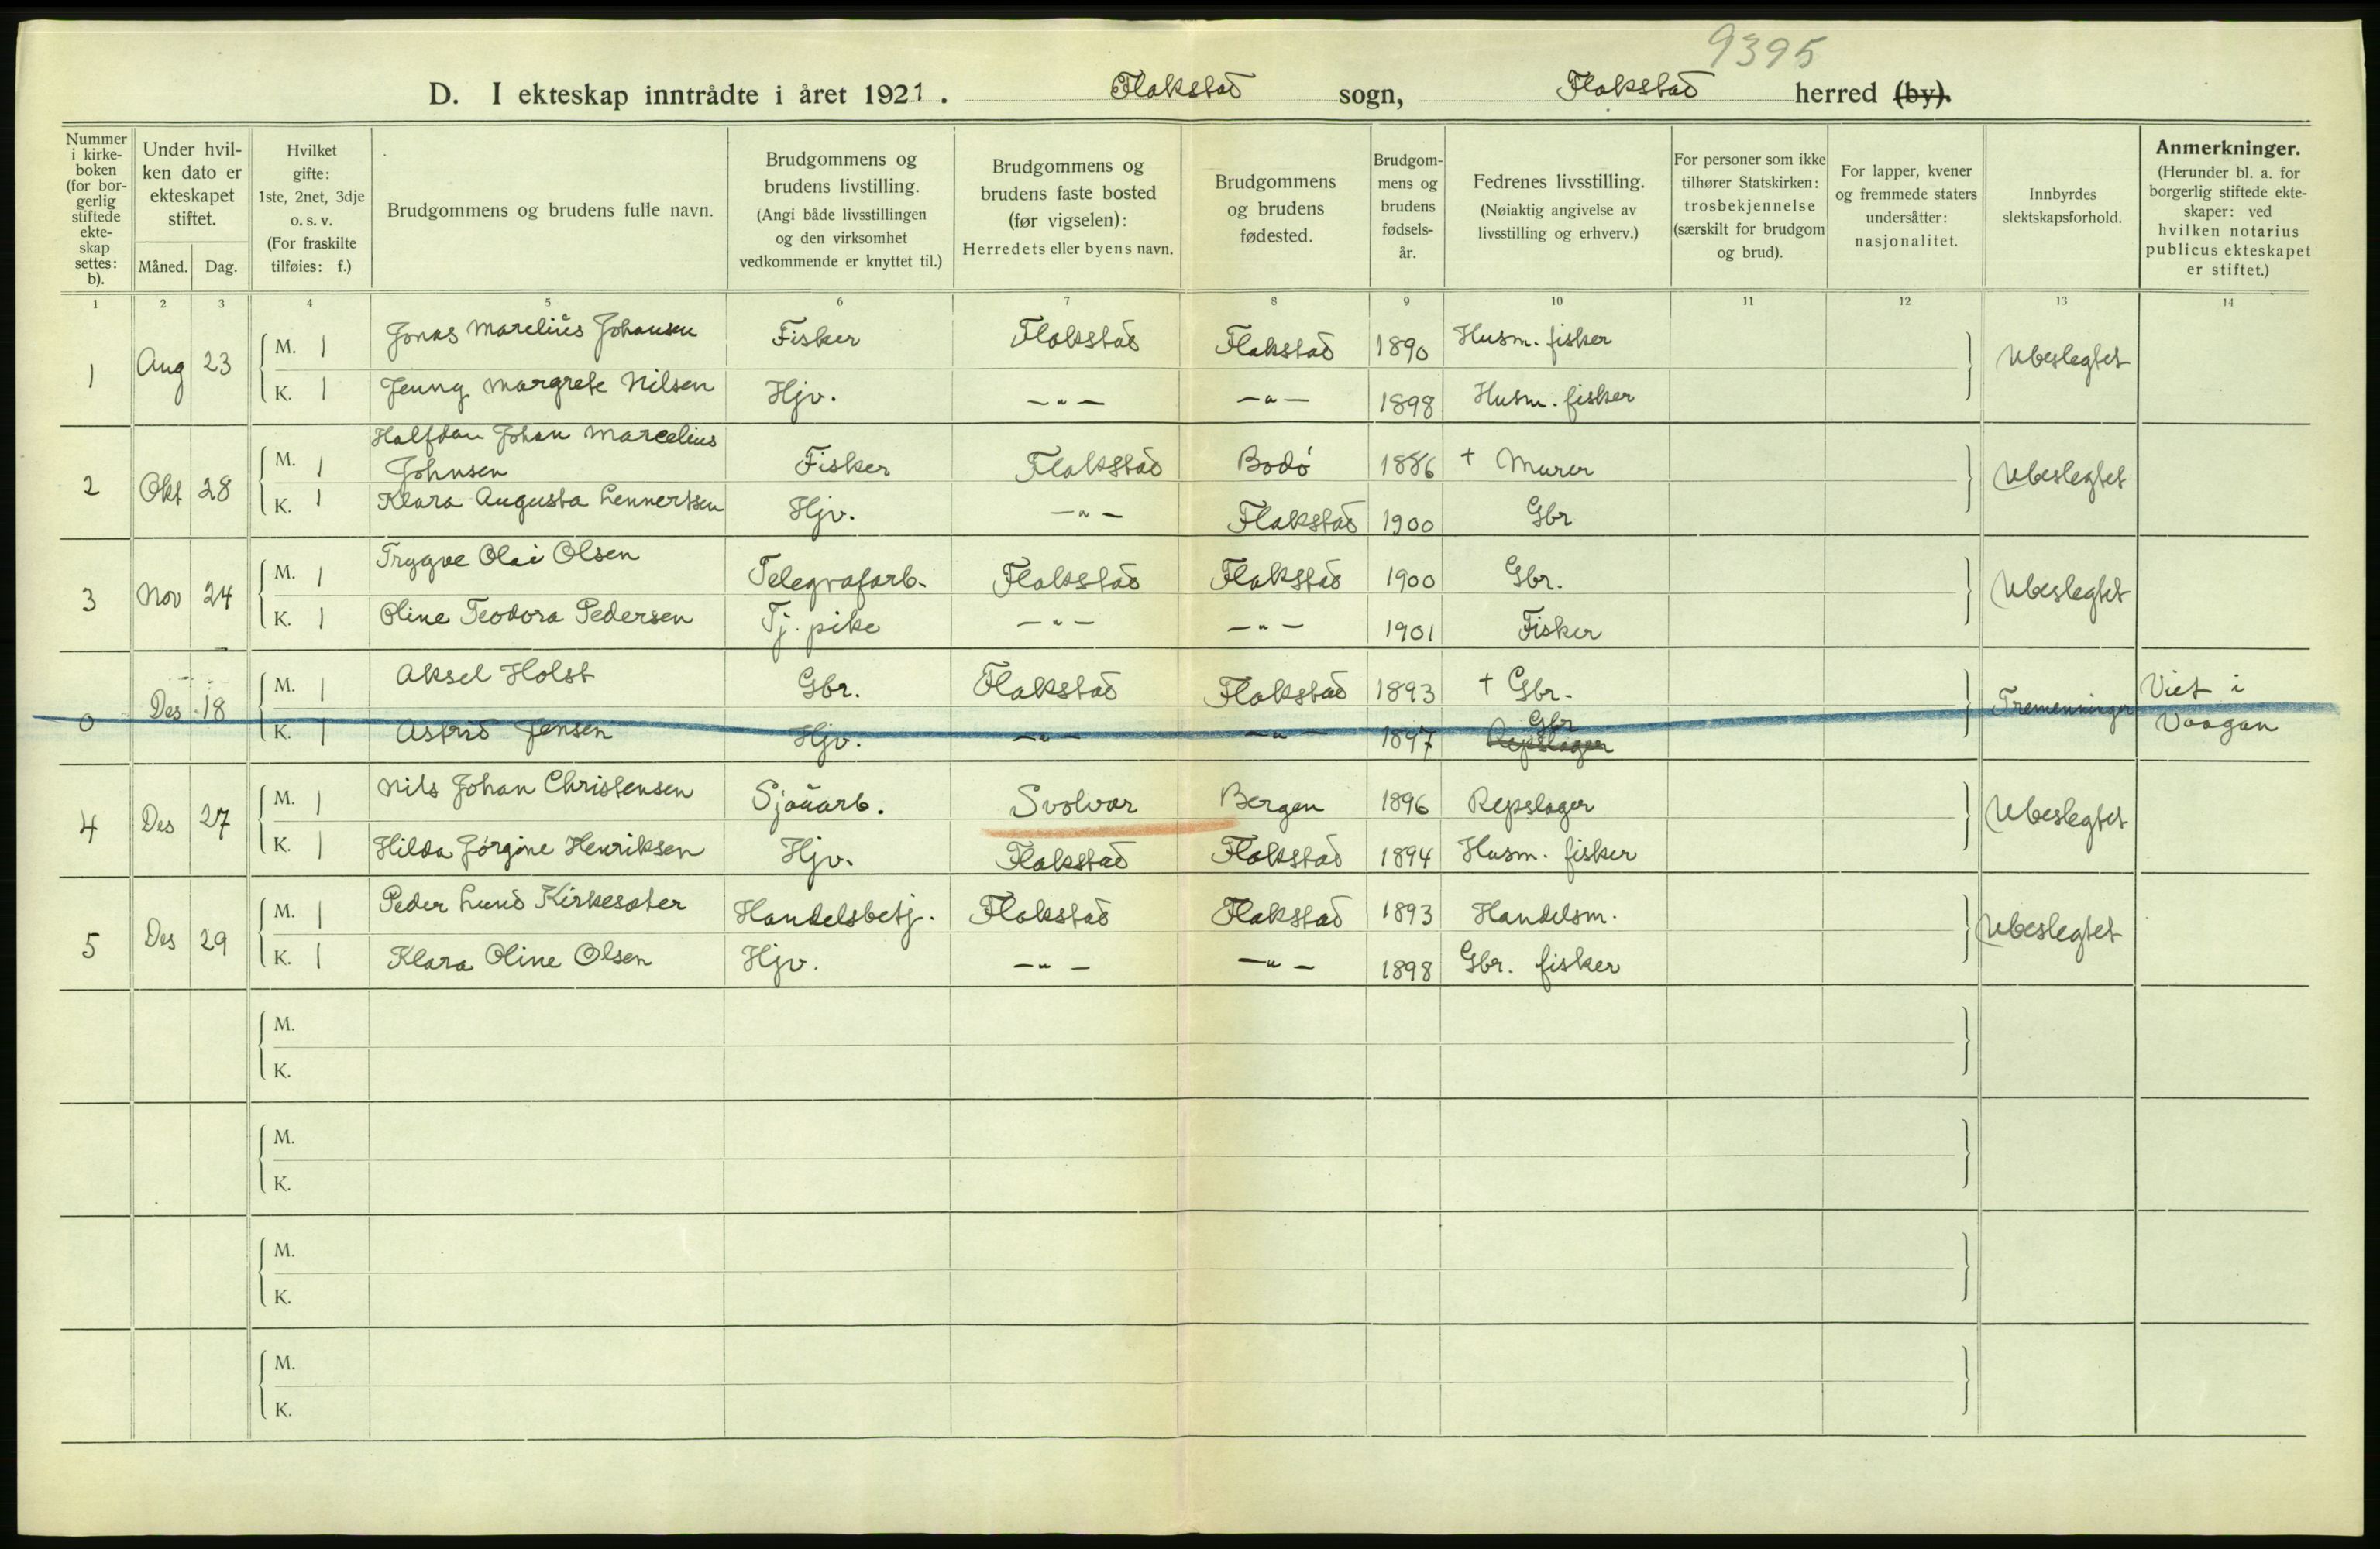 9395
D. I ekteskap inntrådte i året 1921. Flakstad sogn, Flakstad herred (by).
Nummer i kirke-boken (for bor-gerlig stiftede ekte-skap settes: b).
Under hvil-ken dato er ekteskapet stiftet.
Måned. Dag.
Hvilket gifte: 1ste, 2net, 3dje o. s. v. (For fraskilte tilføies: f.)
Brudgommens og brudens fulle navn.
Brudgommens og brudens livstilling. (Angi både livsstillingen og den virksomhet vedkommende er knyttet til.)
Brudgommens og brudens faste bosted (før vigselen): Herredets eller byens navn.
Brudgommens og brudens fødested.
Brudgom-mens og brudens fødsels-år.
Fedrenes livsstilling. (Nøiaktig angivelse av livsstilling og erhverv.)
For personer som ikke tilhører Statskirken: trosbekjennelse (særskilt for brudgom og brud).
For lapper, kvener og fremmede staters undersåtter: nasjonalitet.
Innbyrdes slektskapsforhold.
Anmerkninger. (Herunder bl. a. for borgerlig stiftede ekte-skaper: ved hvilken notarius publicus ekteskapet er stiftet.)
1 2 3 4 5 6 7 8 9 10 11 12 13 14
1 Aug 23 M. 1 Jonas Marelius Johansen Fisker Flakstad Flakstad 1890 Husm. fisker Ubeslegtet
K. 1 Jenny Margrete Nilsen Hjv. — " — — " — 1898 Husm. fisker
2 Okt 28 M. 1 Halfdan Johan Marcelius Johnsen Fisker Flakstad Bodø 1886 + Murer Ubeslegtet
K. 1 Klara Augusta Lennertsen Hjv. — " — Flakstad 1900 Gbr
3 Nov 24 M. 1 Trygve Olai Olsen Telegrafarb. Flakstad Flakstad 1900 Gbr. Ubeslegtet
K. 1 Oline Teodora Pedersen Tj. pike — " — — " — 1901 Fisker
0 Des 18 M. 1 Aksel Holst Gbr. Flakstad Flakstad 1893 + Gbr. Tremenninger Viet i Vaagan
K. 1 Astrid Jensen Hjv. — " — — " — 1897 Gbr Repslager
4 Des 27 M. 1 Nils Johan Christensen Sjauarb. Svolvær Bergen 1896 Repslager Ubeslegtet
K. 1 Hilda Jørgine Henriksen Hjv. Flakstad Flakstad 1894 Husm. fisker
5 Des 29 M. 1 Peder Lund Kirkesæter Handelsbetj. Flakstad Flakstad 1893 Handelsm. Ubeslegtet
K. 1 Klara Oline Olsen Hjv. — " — — " — 1898 Gbr. fisker
M.
K.
M.
K.
M.
K.
M.
K.